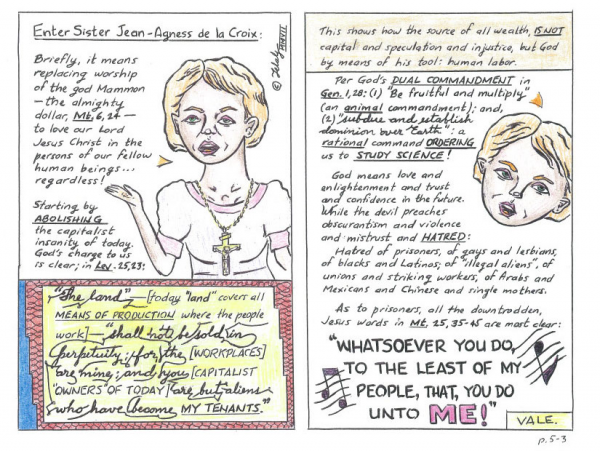 Enter Sister Jean-Agness de la Croix:
Briefly, it means
replacing worship
of the god Mammon
— the almighty
dollar, Mt. 6, 24 —
to love our Lord
Jesus Christ in the
persons of our fellow
human beings...
regardless!
Starting by
ABOLISHING
the capitalist
insanity of today.
God's charge to us
is clear; in Lev. 25,23:
"The land" — [today "land" covers all
MEANS OF PRODUCTION where the people
work] — "shall not be sold in
perpetuity; for the [WORKPLACES]
are mine; and you [CAPITALIST
"OWNERS" OF TODAY] are but aliens
who have become MY TENANTS."
This shows how the source of all wealth, IS NOT
capital and speculation and injustice, but God
by means of his tool: human labor.
Per God's DUAL COMMANDMENT in
Gen. 1,28: (1) "Be fruitful and multiply"
(an animal commandment); and,
(2) "subdue and establish
dominion over Earth": a
rational command ORDERING
us to STUDY SCIENCE!
God means love and
enlightenment and trust
and confidence in the future.
While the devil preaches
obscurantism and violence
and mistrust and HATRED:
Hatred of prisoners, of gays and lesbians,
of blacks and Latinos; of "illegal aliens", of
unions and striking workers, of Arabs and
Mexicans and Chinese and single mothers.
As to prisoners, all the downtradden,
Jesus words in Mt, 25, 35-45 are most clear:
"WHATSOEVER YOU DO,
TO THE LEAST OF MY
PEOPLE, THAT, YOU DO
UNTO ME!"
VALE.
p.5-3